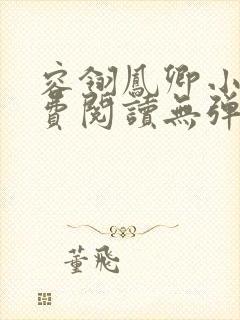 容翎鳳卿小
費閱讀無彈
董飛